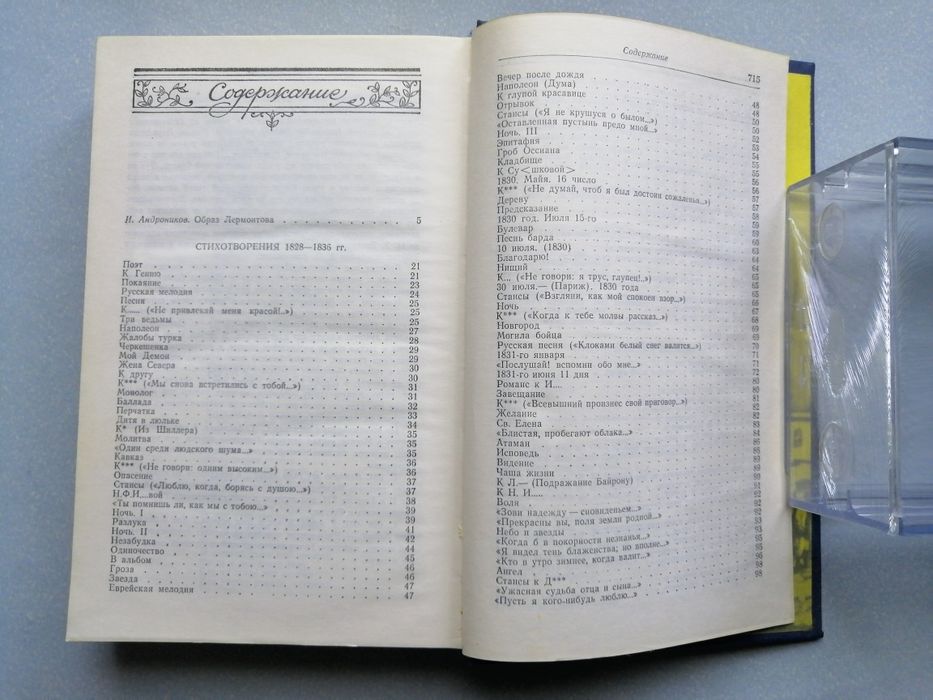 Содержание
И. Андроников. Образ Лермонтова 5
СТИХОТВОРЕНИЯ 1828—1836 гг.
Поэт 21
К Гению 21
Покаяние 23
Русская мелодия 24
Песня 25
К..... («Не привлекай меня красой!..») 25
Три ведьмы 25
Наполеон 27
Жалобы турка 28
Черкешенка 29
Мой Демон 29
Жена Севера 30
К другу 30
К*** («Мы снова встретились с тобой...») 31
Монолог 31
Баллада 32
Перчатка 33
Дитя в люльке 34
К* (Из Шиллера) 35
Молитва 35
«Один среди людского шума...» 35
Кавказ 36
К*** («Не говори: одним высоким...») 36
Опасение 37
Стансы («Люблю, когда, борясь с душою...») 37
Н.Ф.И...вой 38
«Ты помнишь ли, как мы с тобою...» 39
Ночь. I 39
Разлука 41
Ночь. II 42
Незабудка 44
Одиночество 45
В альбом 46
Гроза 46
Звезда 47
Еврейская мелодия 47
Содержание 715
Вечер после дождя 48
Наполеон (Дума) 48
К глупой красавице 50
Отрывок 50
Стансы («Я не крушуся о былом...») 52
«Оставленная пустынь предо мной...» 53
Ночь. III 54
Эпитафия 55
Гроб Оссиана 55
Кладбище 56
К Су<шковой> 56
1830. Майя. 16 число 57
К*** («Не думай, чтоб я был достоин сожаленья...») 57
Дереву 58
Предсказание 59
1830 год. Июля 15-го 60
Булевар 60
Песнь барда 63
10 июля. (1830) 64
Благодарю! 64
Нищий 65
К... («Не говори: я трус, глупец!..») 65
30 июля.— (Париж). 1830 года 66
Стансы («Взгляни, как мой спокоен взор...») 67
Ночь 68
К*** («Когда к тебе молвы рассказ...») 69
Новгород 70
Могила бойца 71
Русская песня («Клоками белый снег валится...») 71
1831-го января 72
«Послушай! вспомни обо мне...» 80
1831-го июня 11 дня 80
Романс к И.... 81
Завещание 82
К*** («Всевышний произнес свой приговор...») 82
Желание 83
Св. Елена 84
«Блистая, пробегают облака...» 86
Атаман 85
Исповедь 89
Видение 89
Чаша жизни 90
К Л.— (Подражание Байрону) 91
К Н. И..... 92
Воля 92
«Зови надежду — сновиденьем...» 93
«Прекрасны вы, поля земли родной...» 93
Небо и звезды 95
«Когда б в покорности незнанья...» 95
«Я видел тень блаженства; но вполне...» 96
«Кто в утро зимнее, когда валит...» 98
Ангел 98
Стансы к Д***
«Ужасная судьба отца и сына...»
«Пусть я кого-нибудь люблю...»